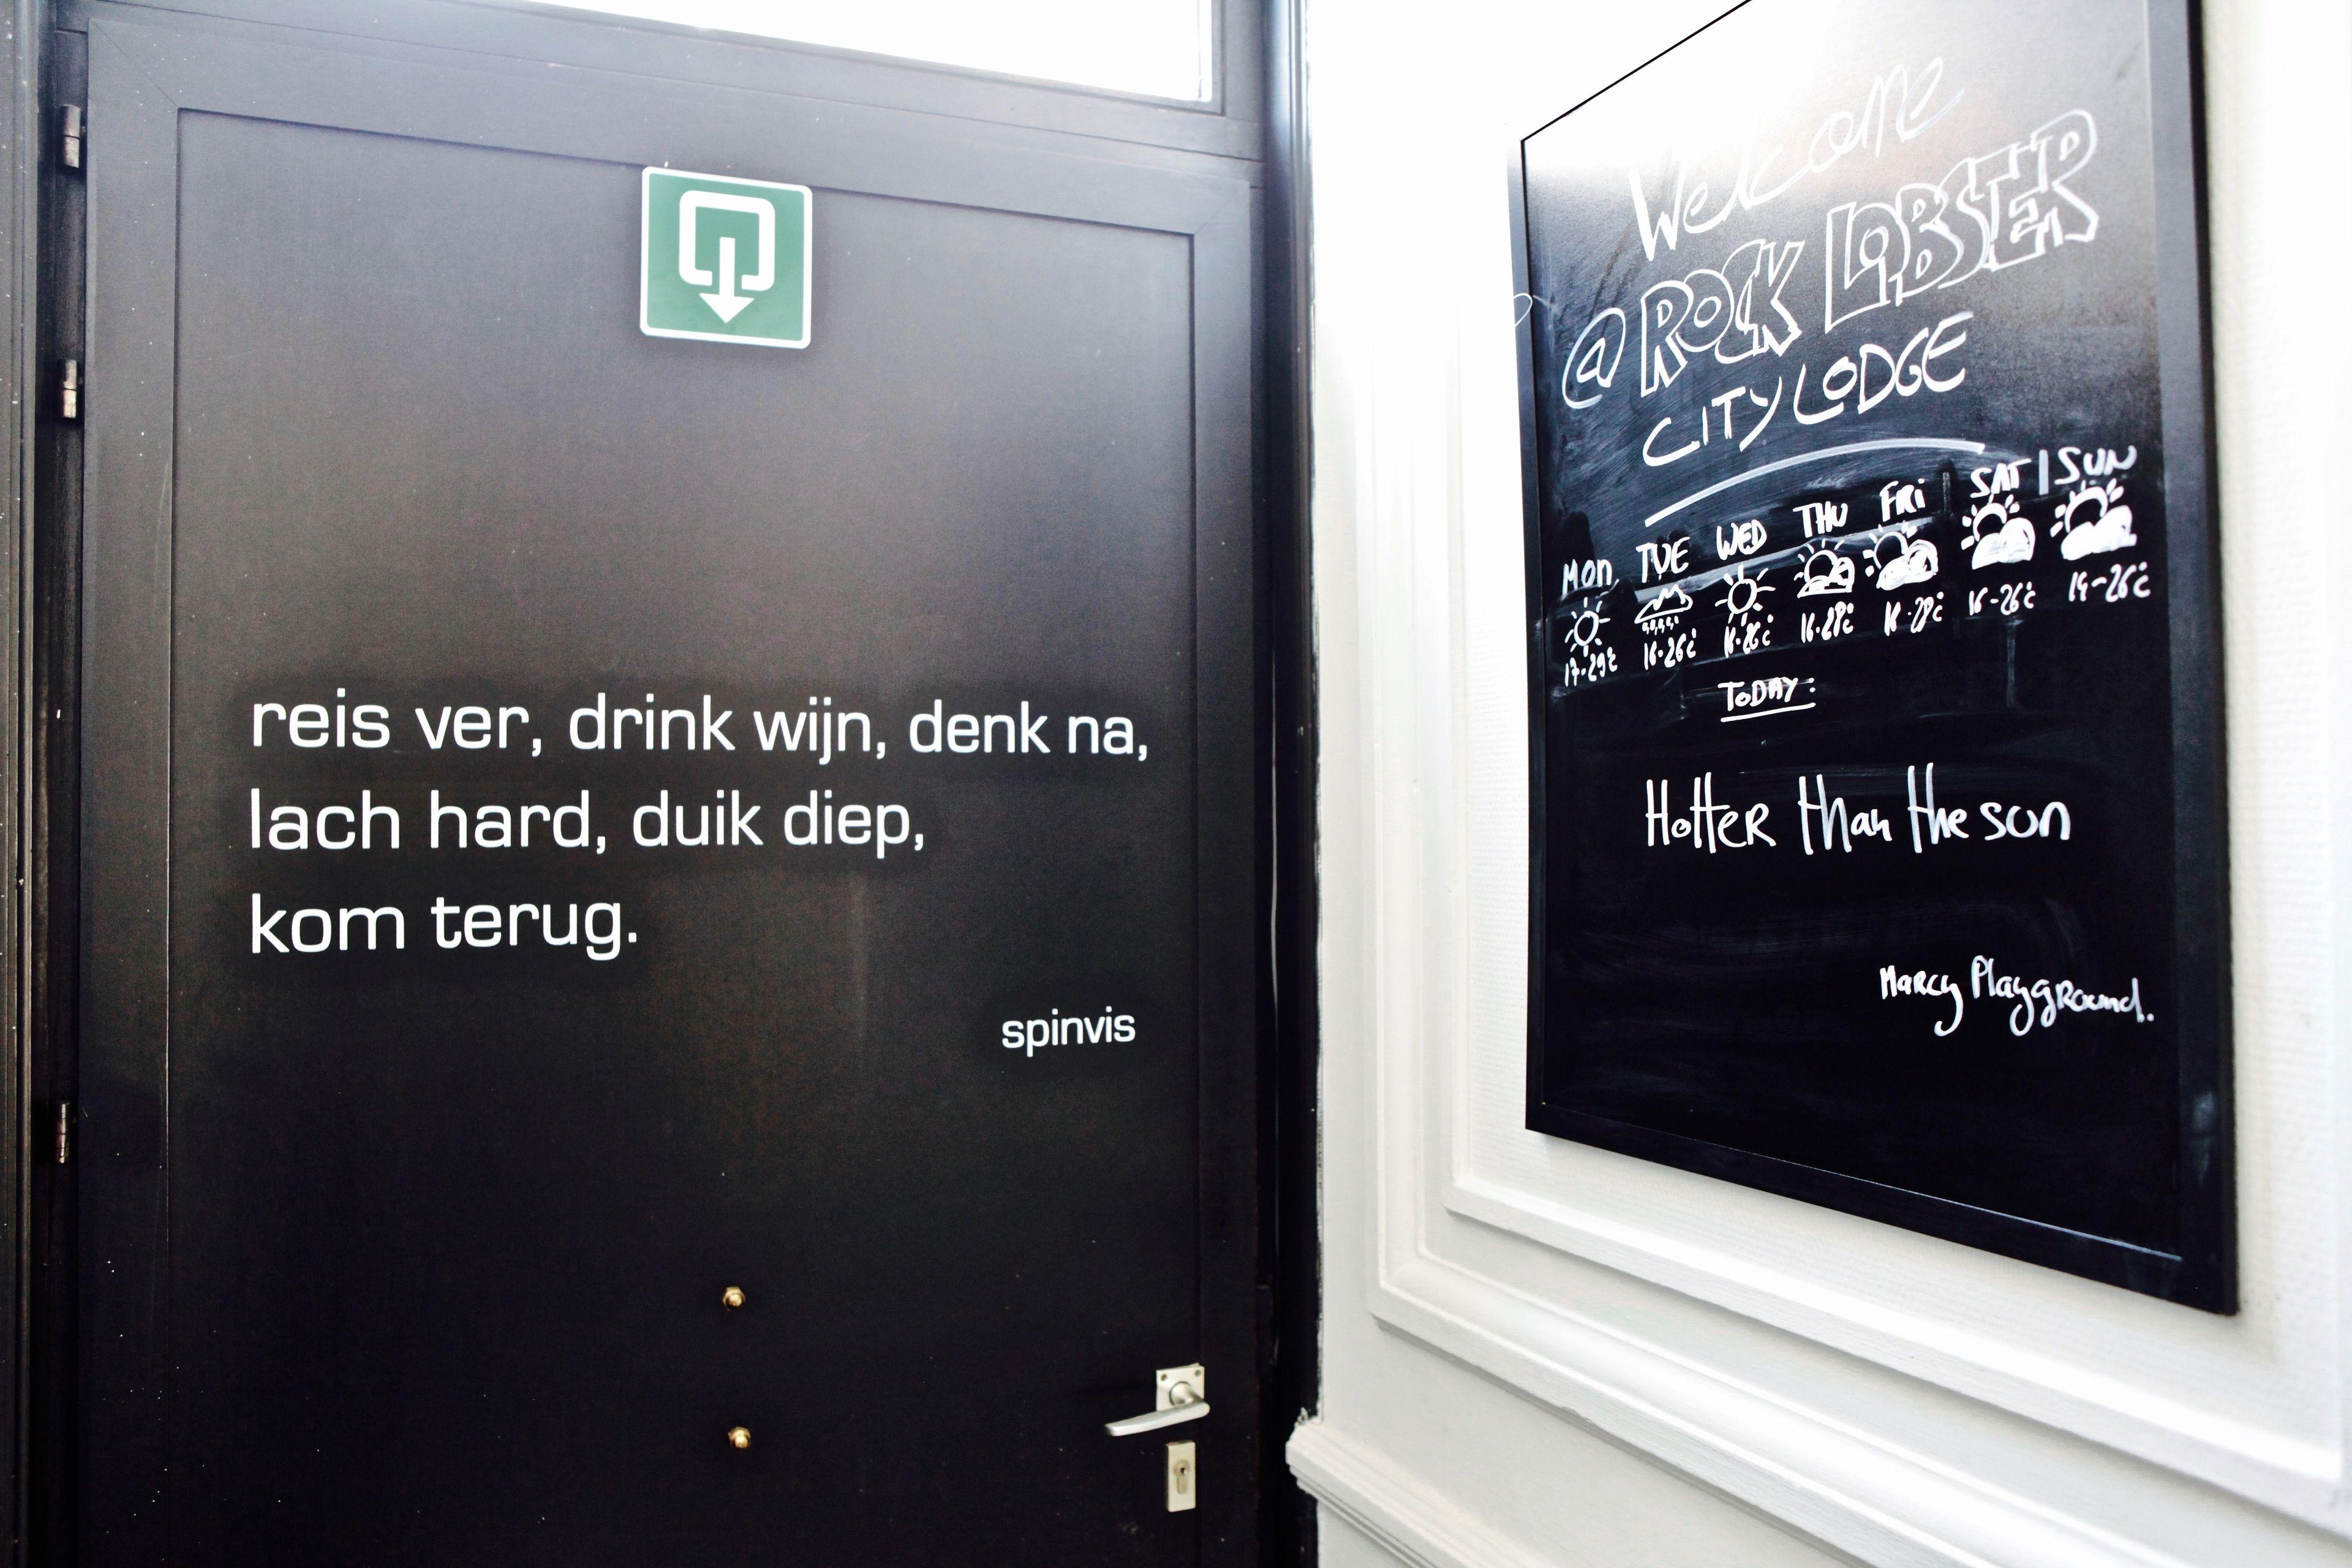 reis ver, drink wijn, denk na,
lach hard, duik diep,
kom terug.
spinvis
Welcome
@ ROCK LOBSTER
CITY LODGE
MON TUE WED THU FRi SAT | SUN
17-29c 16-26c 16-26c 16-28c 16-26c 14-26c
TODAY:
Hotter than the sun
Marcy Playground.